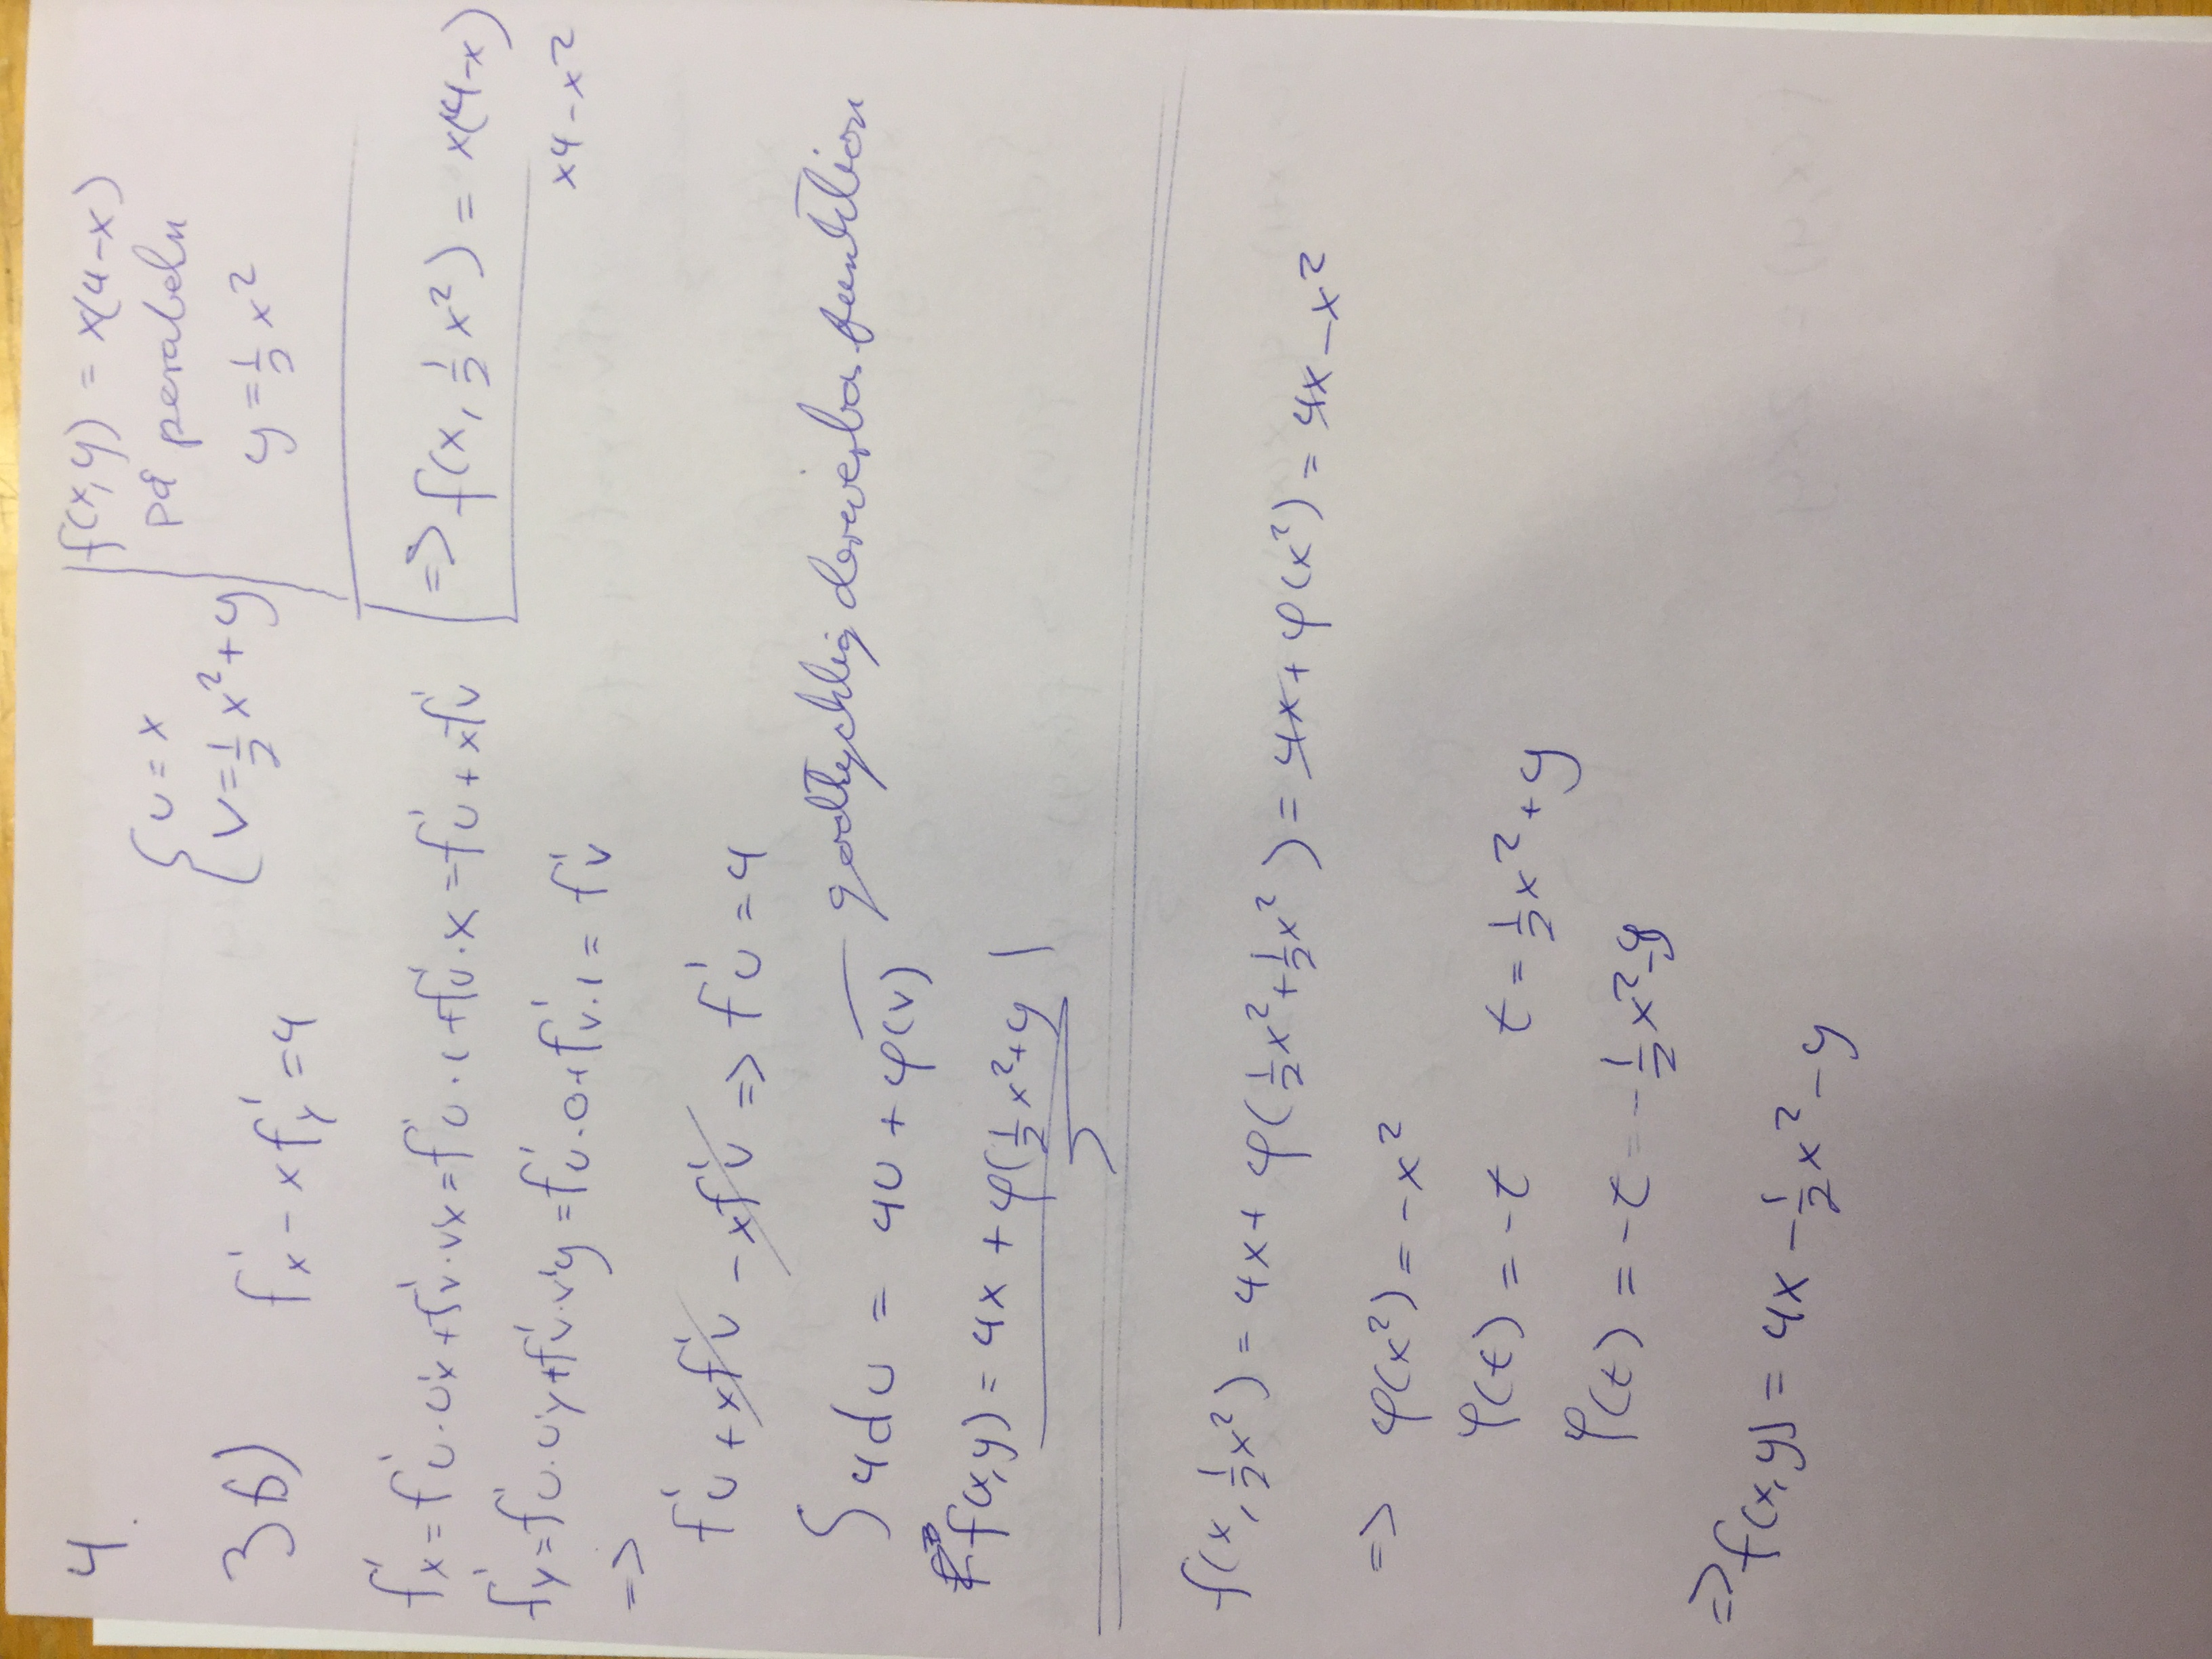 4.
{ u = x
v = 1/2 x² + y
f(x,y) = x(4-x)
på parabeln
y = 1/2 x²
3b) f'x - x f'y = 4
=> f(x, 1/2 x²) = x(4-x)
x4 - x²
f'x = f'u · u'x + f'v · v'x = f'u · 1 + f'v · x = f'u + x f'v
f'y = f'u · u'y + f'v · v'y = f'u · 0 + f'v · 1 = f'v
=>
f'u + x f'v - x f'v => f'u = 4
∫ 4 du = 4u + φ(v) godtycklig deriverbar funktion
f(x,y) = 4x + φ(1/2 x² + y)
f(x, 1/2 x²) = 4x + φ(1/2 x² + 1/2 x²) = 4x + φ(x²) = 4x - x²
=> φ(x²) = -x²
φ(t) = -t t = 1/2 x² + y
φ(t) = -t = -1/2 x² - y
=> f(x,y) = 4x - 1/2 x² - y